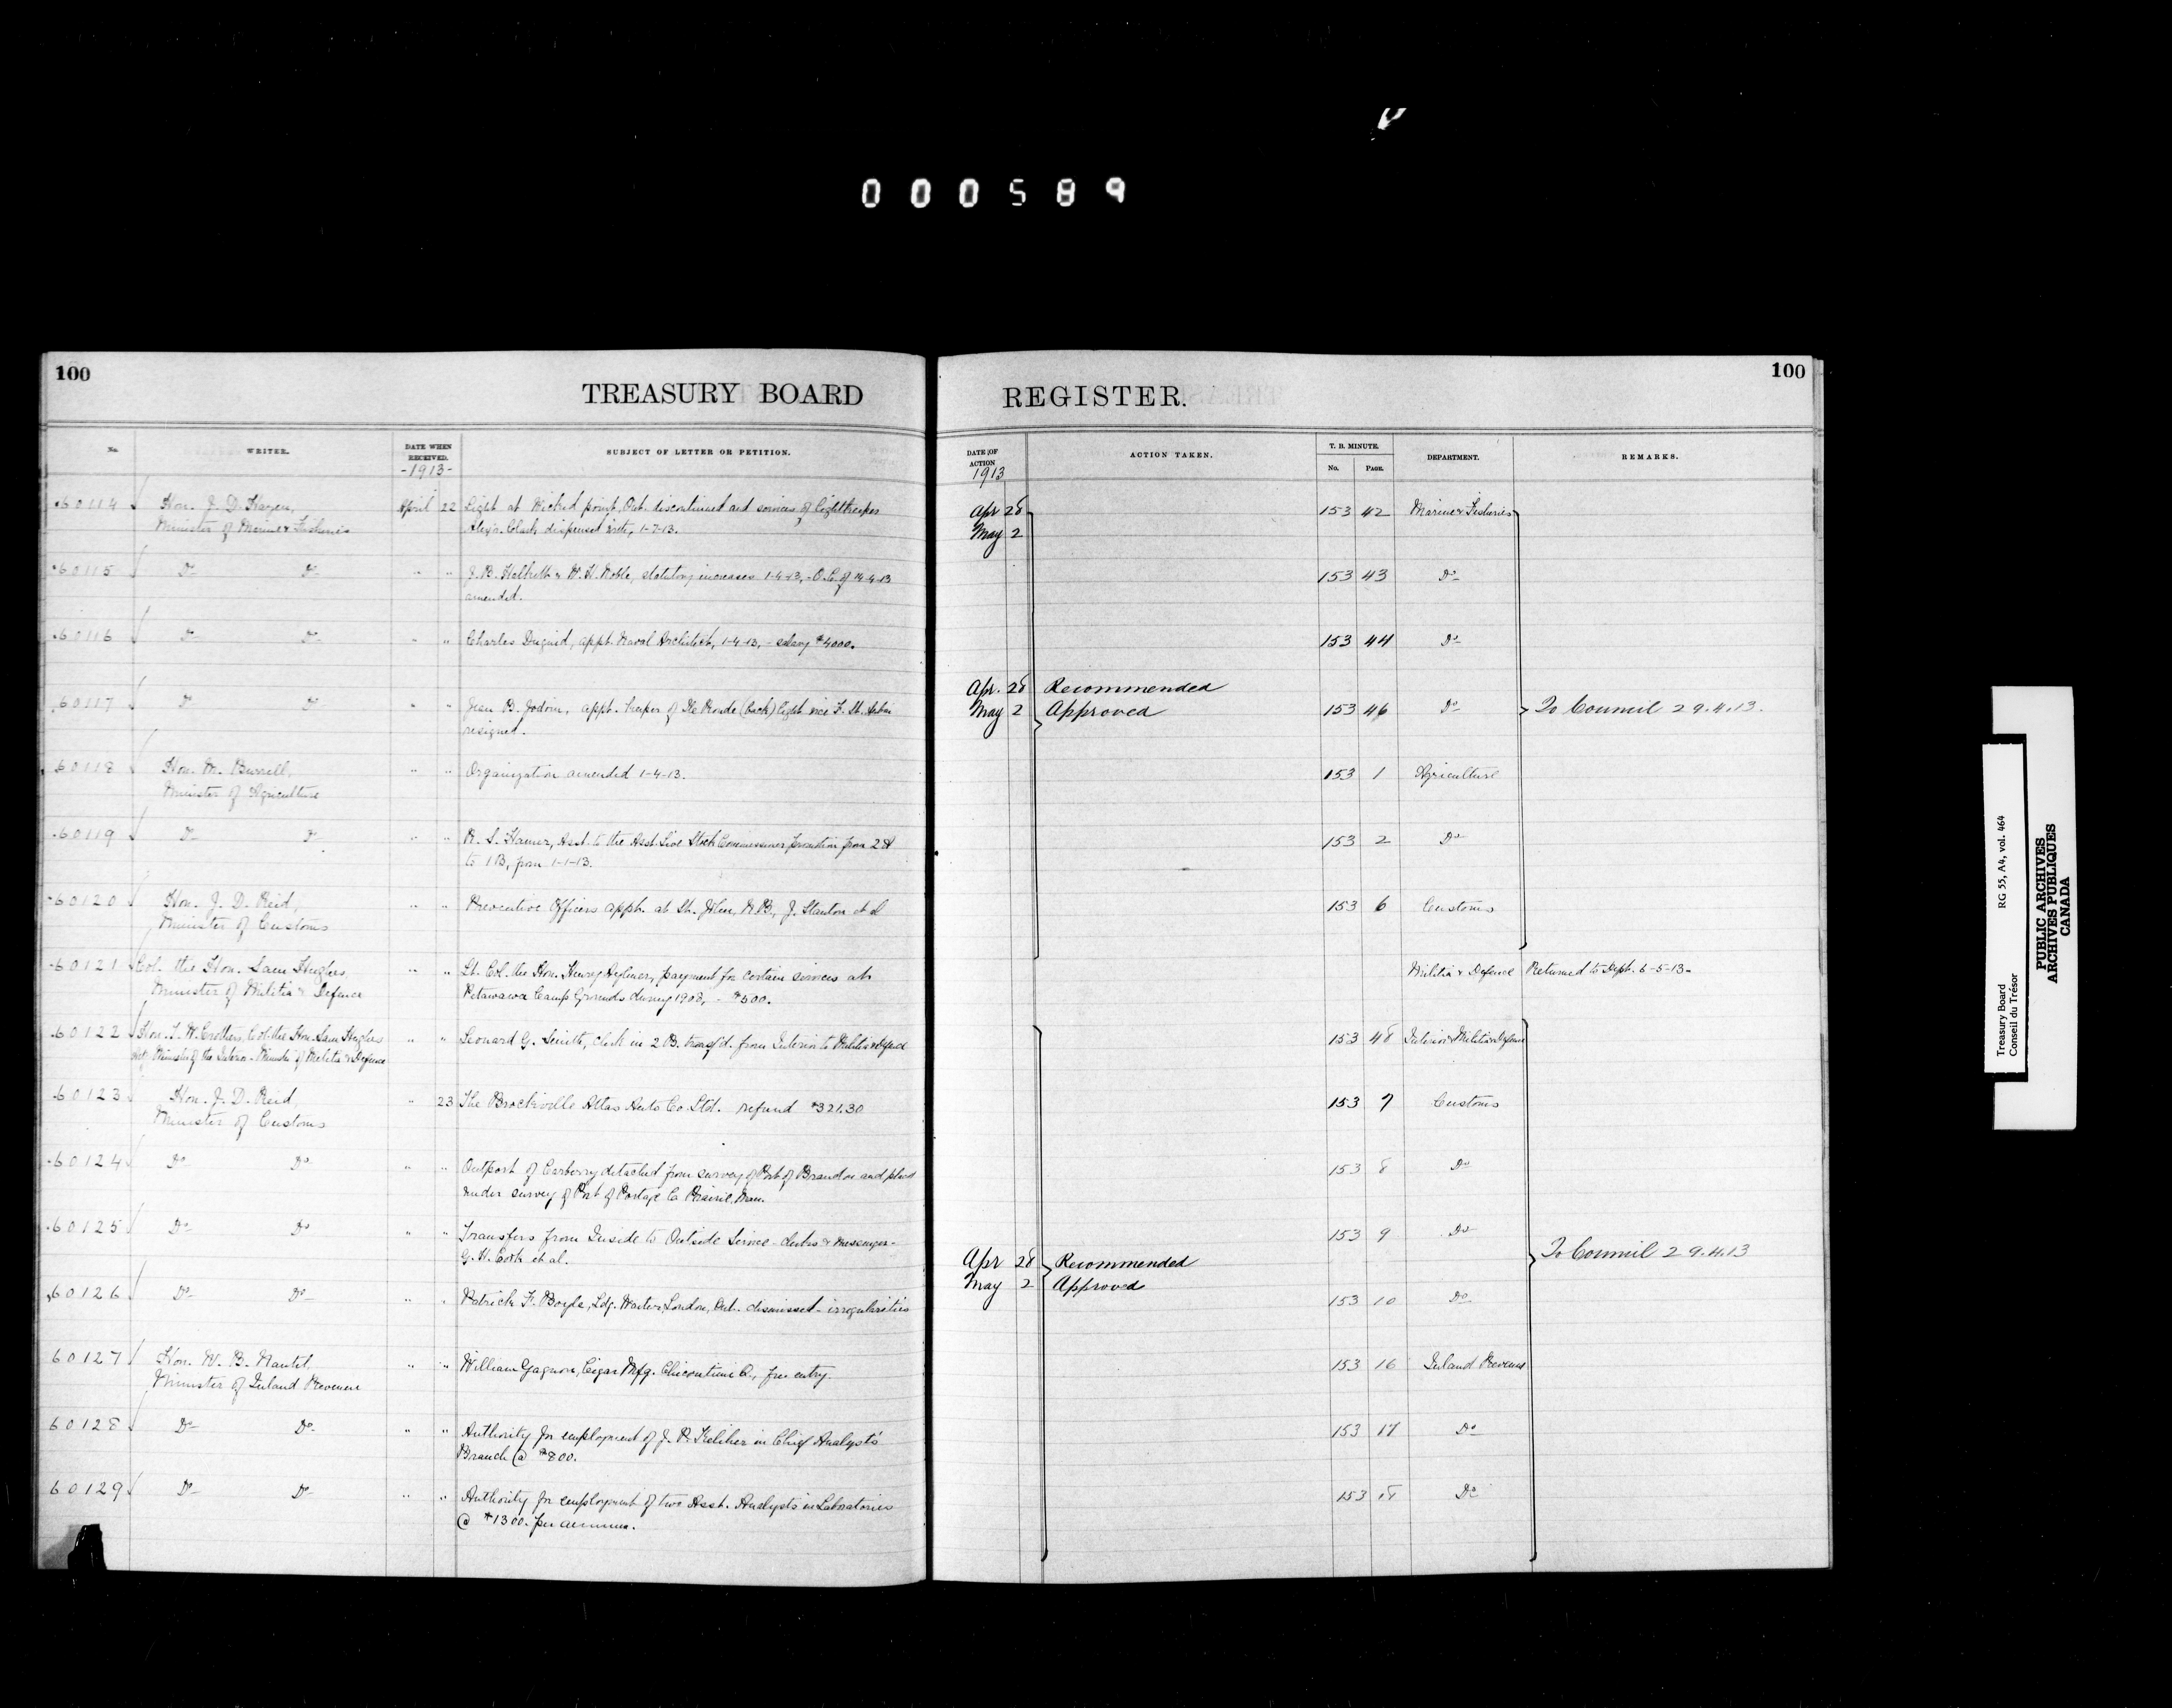 000589
100
TREASURY BOARD
No.
WRITER.
DATE WHEN RECEIVED.
-1913-
SUBJECT OF LETTER OR PETITION.
60114 Hon. J. D. Hazen, April 22 Light at Wicked point, Ont. discontinued and services of lightkeeper
Minister of Marine & Fisheries Alex'r. Clark dispensed with, 1-7-13.
60115 Do- Do- " " statutory increases 1-4-13, - O.C. of 14-4-13
amended.
60116 Do- Do- " " Charles Duguid, appt. Naval Architect, 1-4-13, - salary $4000.
60117 Do- Do- " " Jean B. Jodoin, appt. keeper of Ile Ronde (back) light vice F. St.
resigned.
60118 Hon. M. Burrell, " " Organization amended 1-4-13.
Minister of Agriculture
60119 Do- Do- " " R. S. Hamer, Asst. to the Asst. Live Stock Commissioner promotion from 2A
to 1B, from 1-1-13.
60120 Hon. J. D. Reid, " " Preventive Officers appt. at St. John, N.B., J. Stanton et al
Minister of Customs
60121 Col. the Hon. Sam Hughes, " " Lt. Col. the Hon. Henry Aylmer, payment for certain services at
Minister of Militia & Defence Petawawa Camp Grounds during 1908, - $500.
60122 Hon. T. W. Crothers, Col. the Hon. Sam Hughes " " Leonard G. Smith, Clerk in 2 B. transf'd. from Interior to Militia & Defence
Actg Minister of the Interior - Minister of Militia & Defence
60123 Hon. J. D. Reid, " 23 The Brockville Atlas Auto Co. Ltd. refund $321.30
Minister of Customs
60124 Do- Do- " " Outport of Carberry detached from survey of Port of Brandon and placed
under survey of Port of Portage la Prairie, Man.
60125 Do- Do " " Transfers from Inside to Outside Service - clerks & messenger -
G. H. Cook et al.
60126 Do- Do- " " Patrick F. Boyle, Ldg. Waiter, London, Ont. dismissed - irregularities
60127 Hon. W. B. Nantel, " " William Gagnon, Cigar Mfg. Chicoutimi Q., free entry
Minister of Inland Revenue
60128 Do- Do- " " Authority for employment of J. P. Keliher in Chief Analyst's
Branch @ $800.
60129 Do- Do- " " Authority for employment of two Asst. Analysts in Laboratories
@ $1300. per annum.
100
REGISTER.
DATE OF ACTION
1913
ACTION TAKEN.
T. B. MINUTE.
No. PAGE.
DEPARTMENT.
REMARKS.
Apr 28 153 42 Marine & Fisheries
May 2
153 43 Do-
153 44 Do-
Apr. 28 Recommended
May 2 Approved 153 46 Do- To Council 29.4.13.
153 1 Agriculture
153 2 Do-
153 6 Customs
Militia & Defence Returned to Dept. 6-5-13-
153 48 Interior & Militia & Defence
153 7 Customs
153 8 Do-
153 9 Do-
To Council 29.4.13
Apr 28 Recommended
May 2 Approved
153 10 Do-
153 16 Inland Revenue
153 17 Do
153 18 Do
Treasury Board RG 55, A4, vol. 464
Conseil du Trésor
PUBLIC ARCHIVES
ARCHIVES PUBLIQUES
CANADA